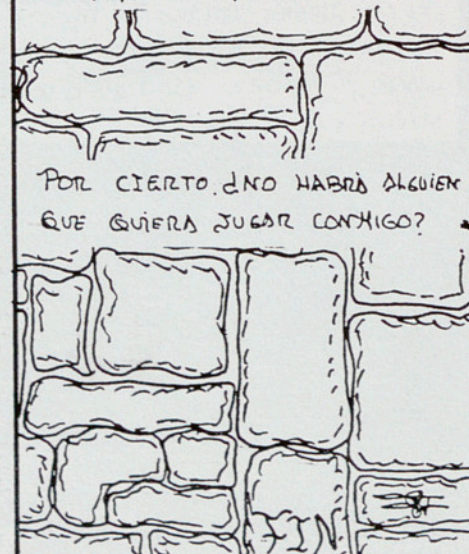 POR CIERTO, ¿NO HABRÁ ALGUIEN
QUE QUIERA JUGAR CONMIGO?
FIN